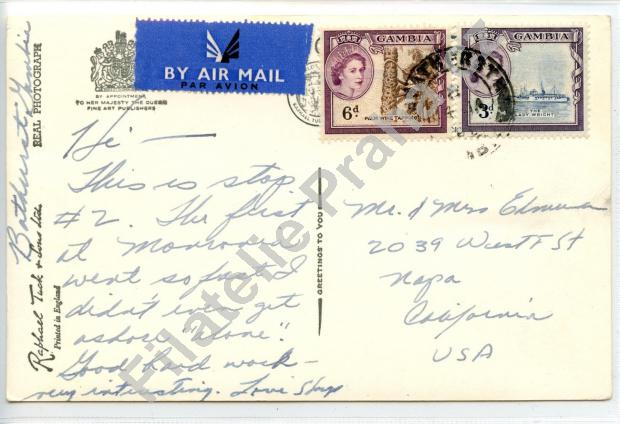 BY AIR MAIL
PAR AVION
BY APPOINTMENT
TO HER MAJESTY THE QUEEN
FINE ART PUBLISHERS
REAL PHOTOGRAPH
Raphael Tuck & Sons Ltd.
Printed in England
Bathurst, Gambia
GAMBIA
6d
PALM WINE TAPPING
GAMBIA
3d
THE
LADY WRIGHT
BATHURST
Hi —
This is stop
#2. The first
at Monrovia
went so fast I
didn't even get
ashore "alone".
Good hard work –
very interesting. Love
GREETINGS TO YOU
Mr. & Mrs
2039 West F St
Napa
California
USA
Filatelie Prama